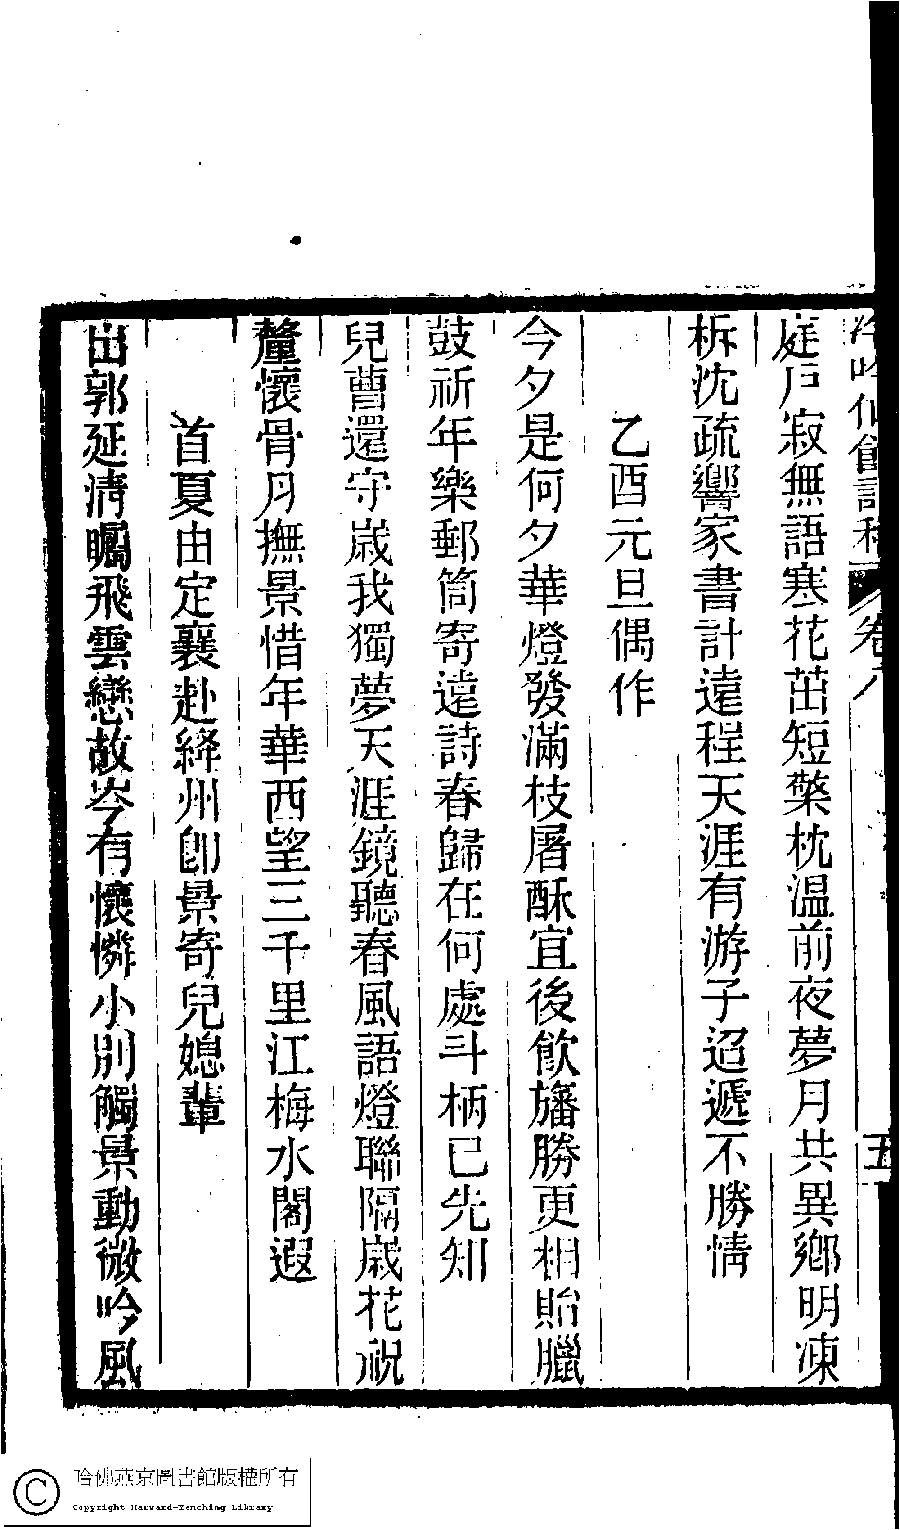 冷吟仙館詩稿 卷六 五
庭戶寂無語寒花茁短檠枕溫前夜夢月共異鄉明凍
柝沈疏響家書計遠程天涯有游子迢遞不勝情
乙酉元旦偶作
今夕是何夕華燈發滿枝屠酥宜後飲旛勝更相貽臘
鼓祈年樂郵筒寄遠詩春歸在何處斗柄已先知
兒曹還守歲我獨夢天涯鏡聽春風語燈聯隔歲花祝
釐懷骨月撫景惜年華西望三千里江梅水閣遐
首夏由定襄赴絳州卽景寄兒媳輩
出郭延清矚飛雲戀故岑有懷憐小別觸景動微吟風
哈佛燕京圖書館版權所有
Copyright Harvard-Yenching Library